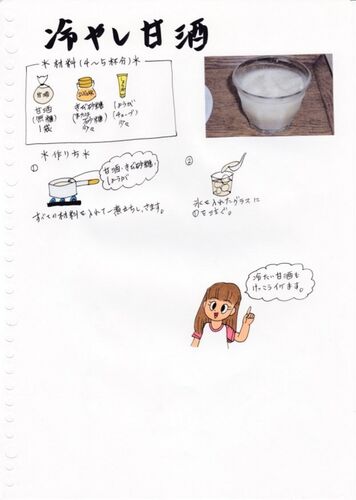 冷やし甘酒
*材料(4~5杯分)*
甘酒
甘酒
(無糖)
1袋
SUGAR
きび砂糖
(または
砂糖)
少々
しょうが
(チューブ)
少々
*作り方*
①
甘酒・きび砂糖・
しょうが
すべての材料を入れて一煮立ちし、さます。
②
氷を入れたグラスに
①を注ぐ。
冷たい甘酒も
けっこうイケます。